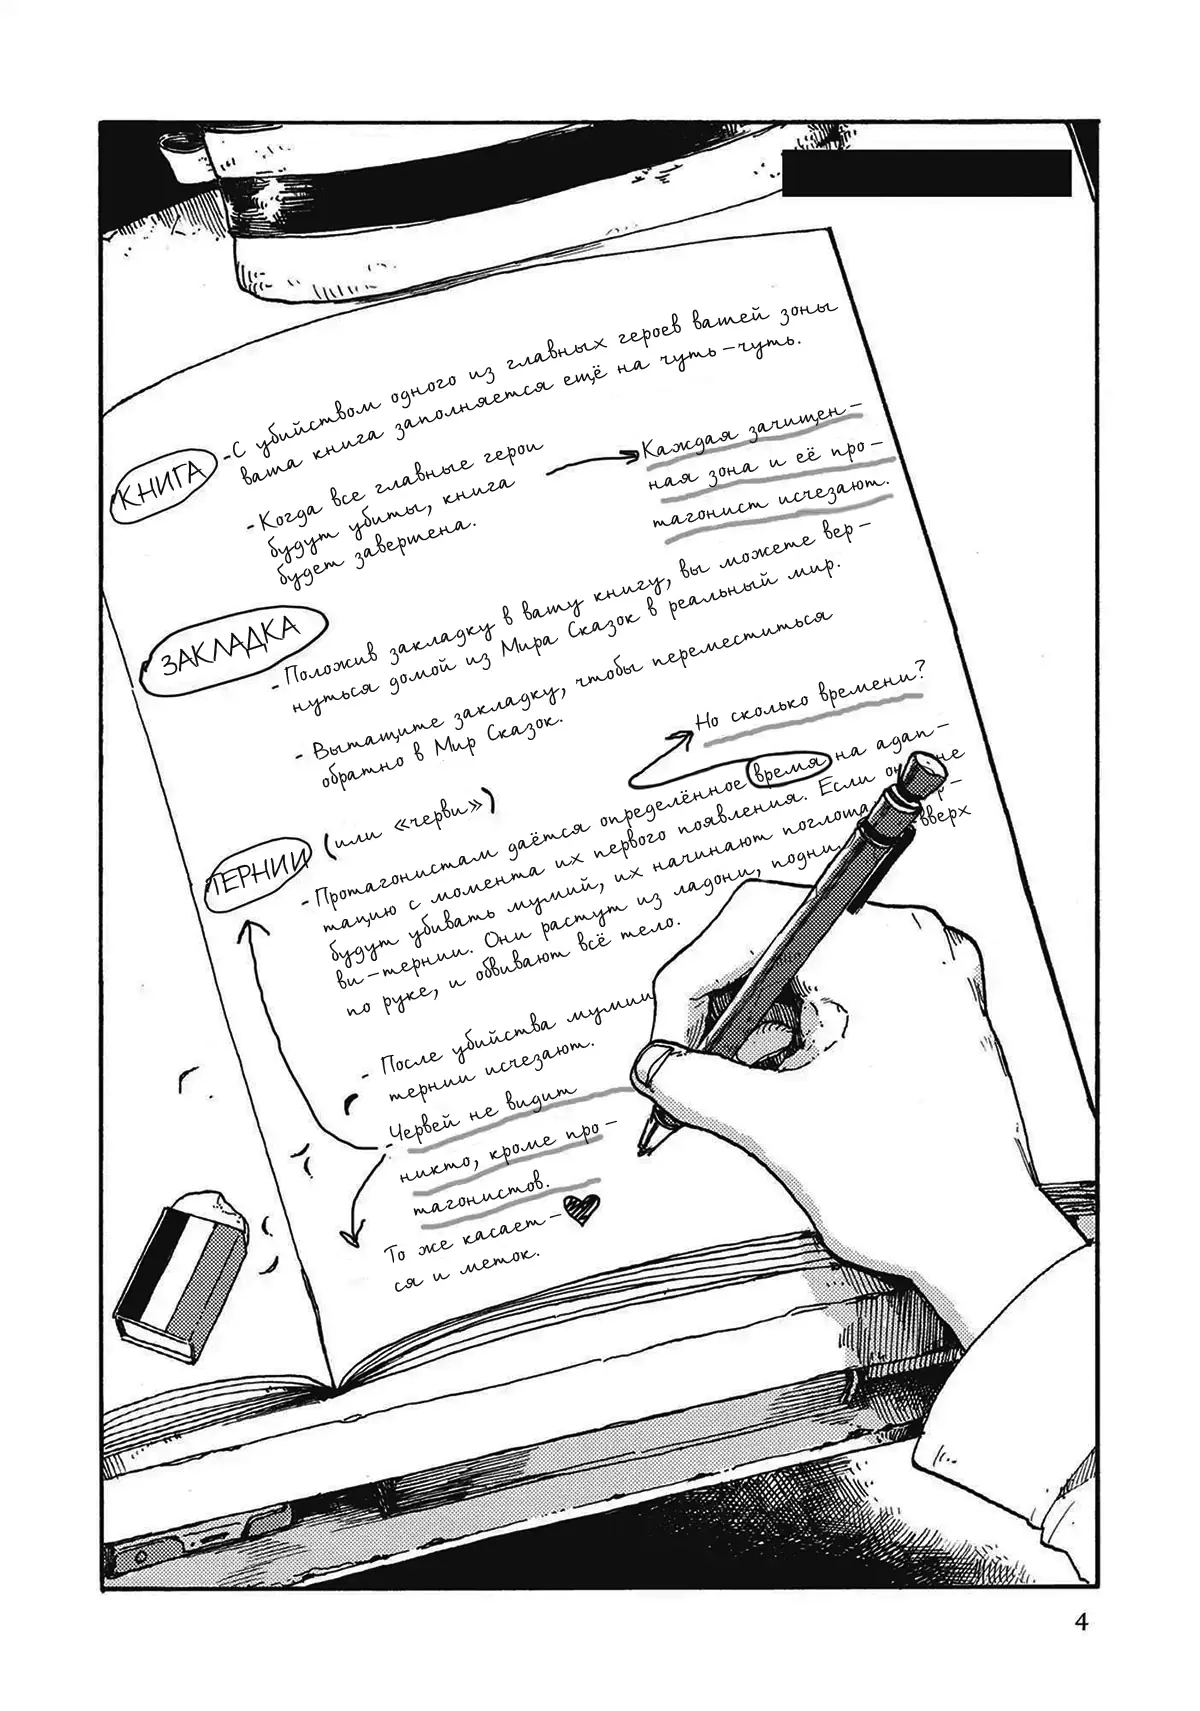 КНИГА
-С убийством одного из главных героев вашей зоны
ваша книга заполняется ещё на чуть-чуть.
-Когда все главные герои
будут убиты, книга
будет завершена.
Каждая зачищен-
ная зона и её про-
тагонист исчезают.
ЗАКЛАДКА
-Положив закладку в вашу книгу, вы можете вер-
нуться домой из Мира Сказок в реальный мир.
-Вытащите закладку, чтобы переместиться
обратно в Мир Сказок.
Но сколько времени?
ТЕРНИИ (или «черви»)
-Протагонистам даётся определённое время на адап-
тацию с момента их первого появления. Если не
будут убивать мумий, их начинают
ви-тернии. Они растут из ладони, вверх
по руке, и обвивают всё тело.
-После убийства мумии
тернии исчезают.
-Червей не видит
никто, кроме про-
тагонистов.
То же касает-
ся и меток.
4